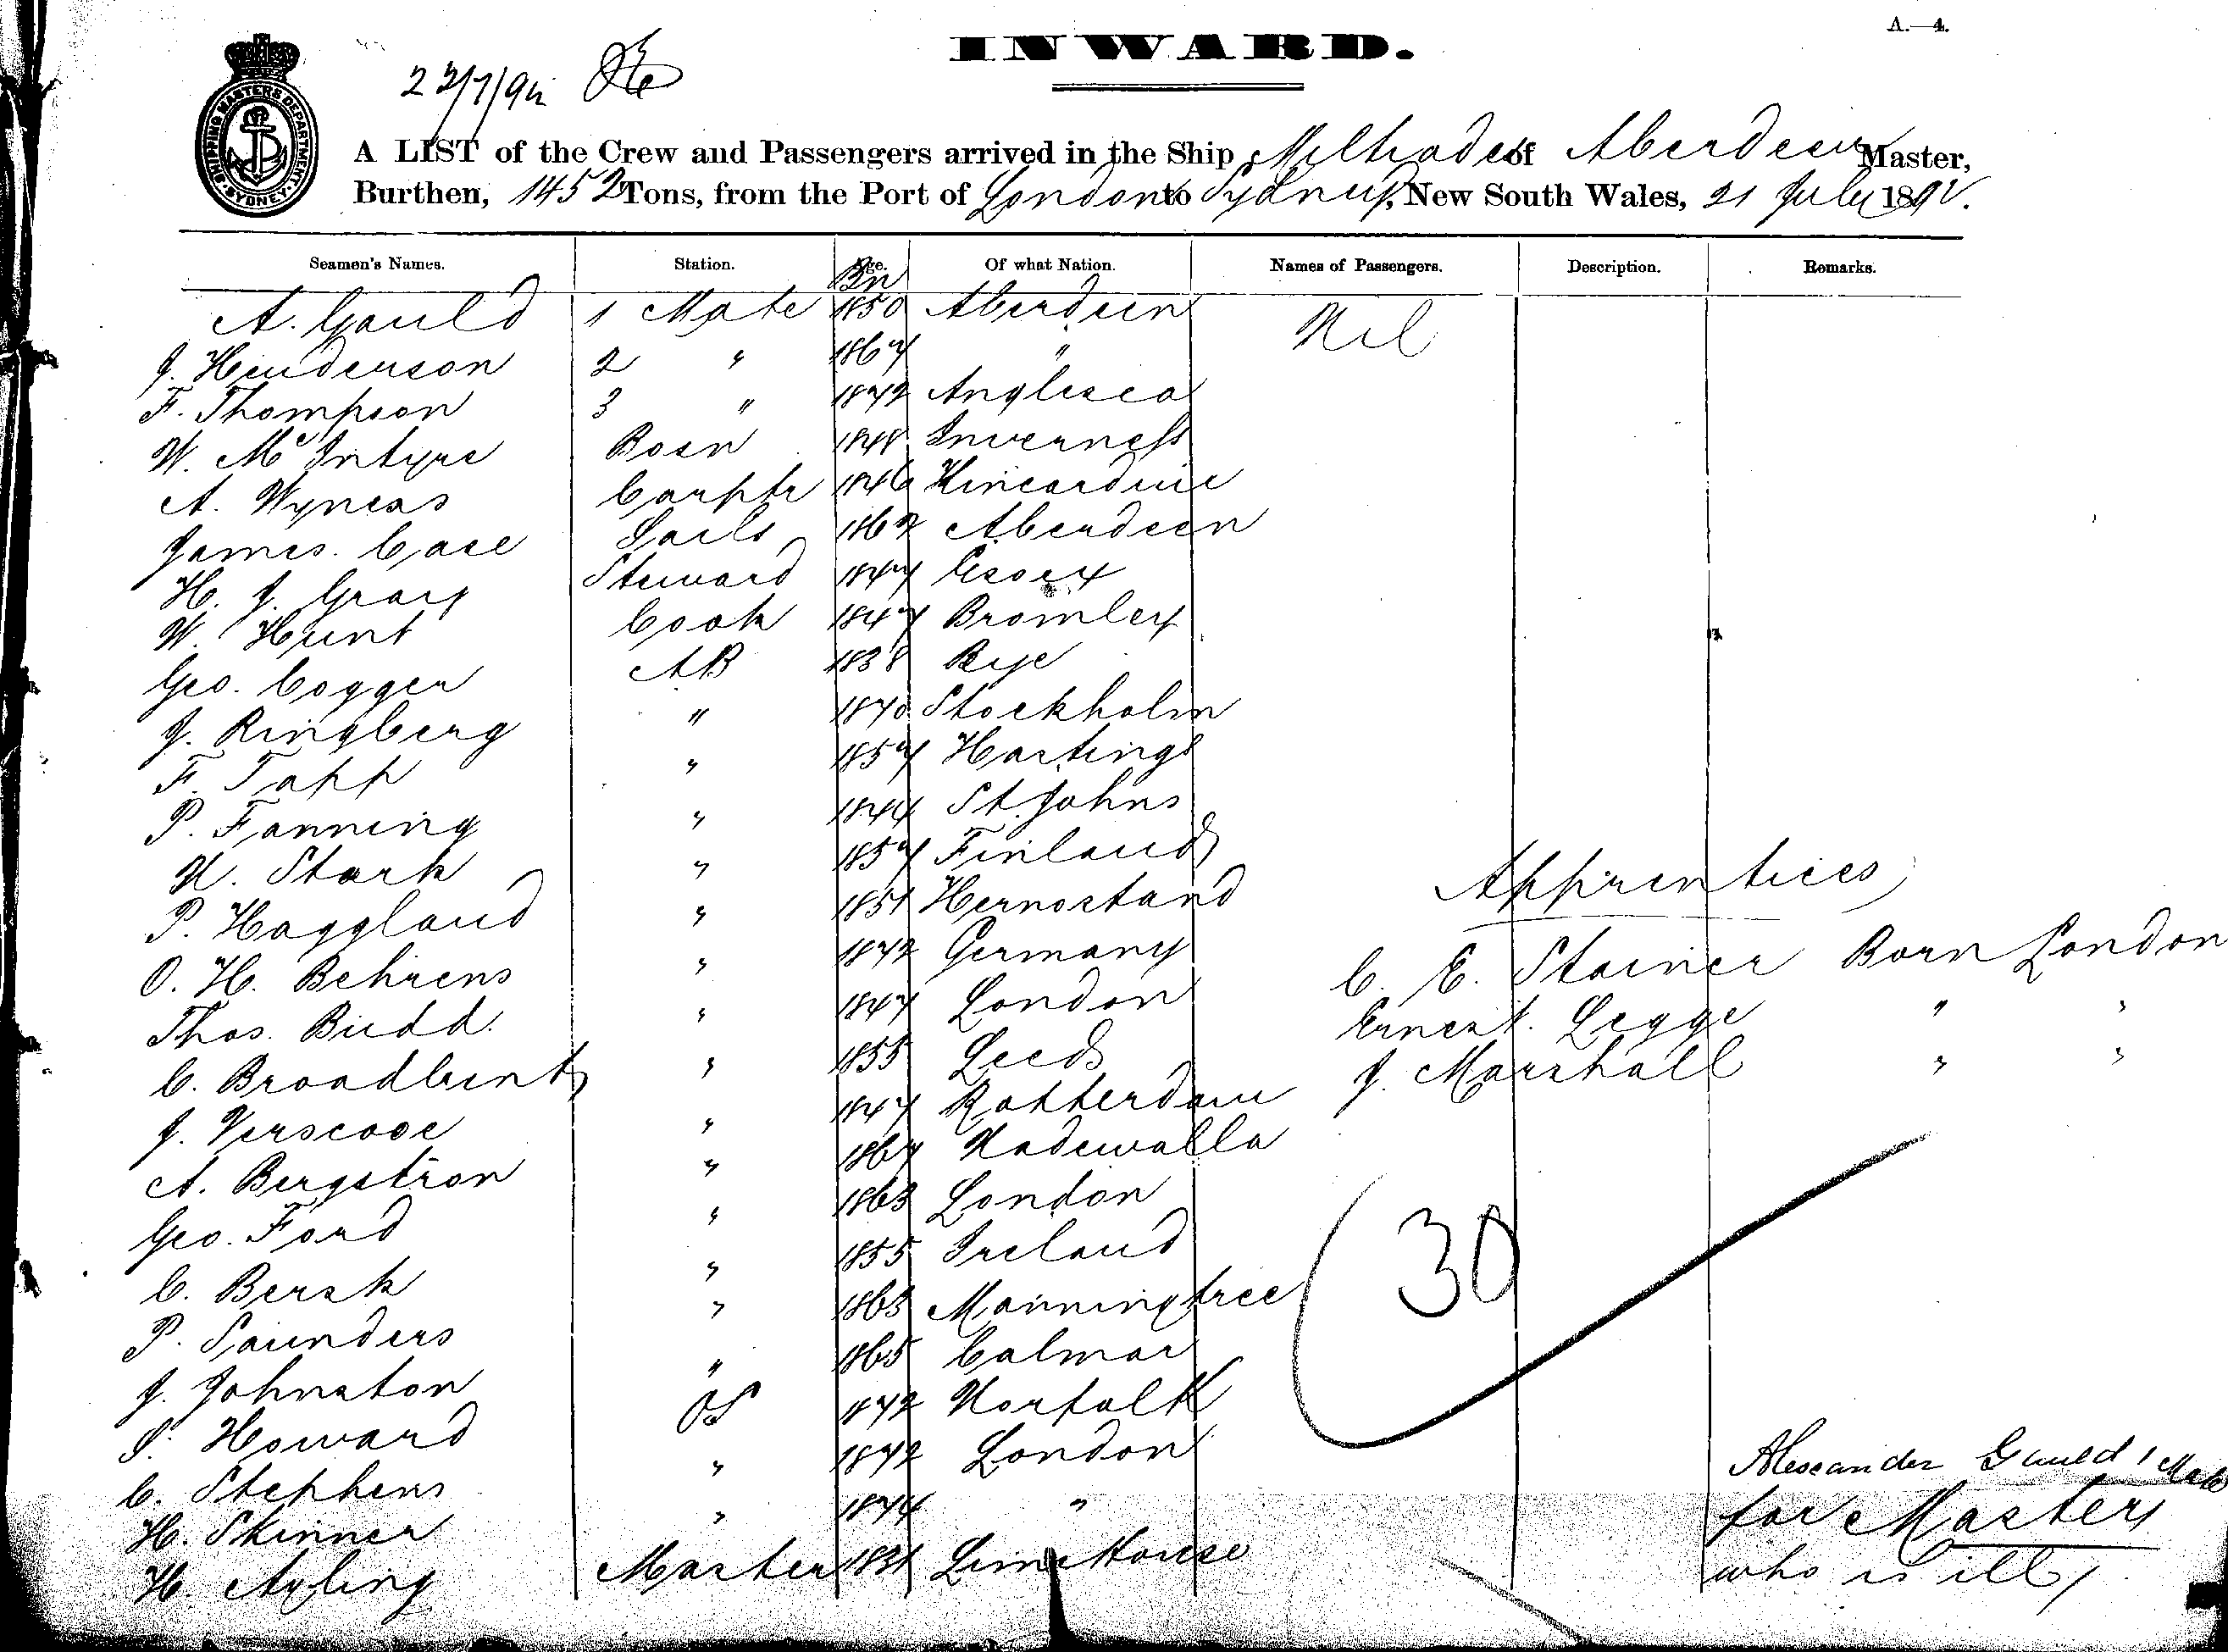 INWARD.
A.—4.
SHIPPING MASTERS DEPARTMENT SYDNEY
A LIST of the Crew and Passengers arrived in the Ship Miltiades of Aberdeen Master,
Burthen, 1452 Tons, from the Port of London to Sydney, New South Wales, 21 July 1892.
Seamen's Names. Station. Age. Of what Nation. Names of Passengers. Description. Remarks.
Bn
A. Gauld 1 Mate 1850 Aberdeen Nil
J. Henderson 2 " 1867 "
F. Thompson 3 " 1872 Anglesea
W. McIntyre Bosn 1848 Inverness
A. Wyness Carptr 1846 Kincardine
James. Case Sails 1862 Aberdeen
H. J. Gray Steward 1847 Essex
W. Hunt Cook 1847 Bromley
Geo. Cogger AB 1838 Rye
J. Ringberg " 1870 Stockholm
F. Tapp " 1857 Hastings
P. Fanning " 1844 St. Johns
N. Stark " 1857 Finland
P. Haggland " 1851 Hernostand
O. H. Behrens " 1872 Germany
Thos. Budd. " 1847 London
C. Broadbent " 1855 Leeds
J. Verscooe " 1847 Rotterdam
A. Bergstron " 1867 Nadewalla
Geo. Ford " 1863 London
C. Bersk " 1855 Ireland
P. Saunders " 1863 Manningtree
J. Johnston " 1865 Calmar
S. Howard OS 1872 Norfolk
C. Stephens " 1872 London
H. Skinner " 1874 "
H. Ayling Master 1831 Lime House
Apprentices
C. E. Stainer Born London
Ernest. Legge " "
J. Marshall " "
30
Alexander Gauld 1 Mate
for Masters
who is ill